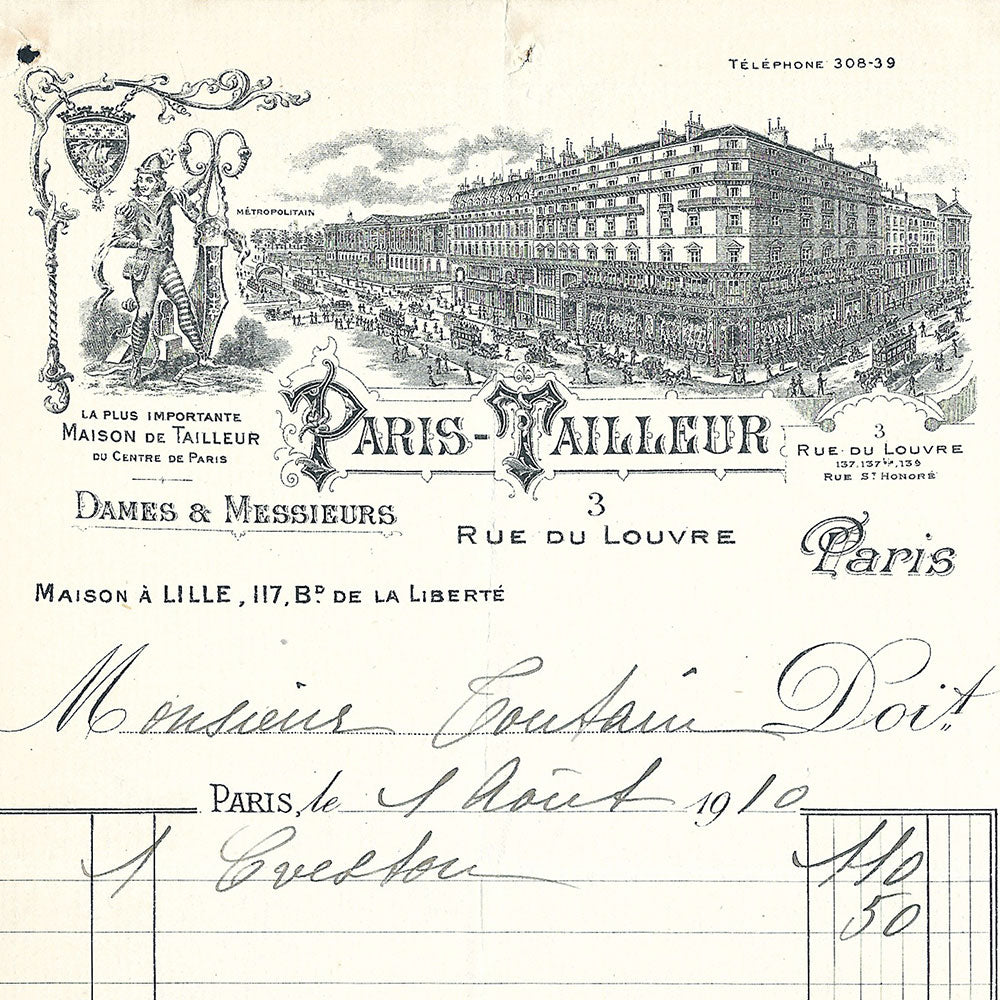 TÉLÉPHONE 308-39
MÉTROPOLITAIN
LA PLUS IMPORTANTE
MAISON DE TAILLEUR
DU CENTRE DE PARIS
PARIS-TAILLEUR
3
RUE DU LOUVRE
137, 137 bis, 139
RUE ST HONORÉ
DAMES & MESSIEURS
3
RUE DU LOUVRE
Paris
MAISON À LILLE, 117, BD DE LA LIBERTÉ
Monsieur Toutain Doit
PARIS, le 1 Août 1910
1 Veston 110
50